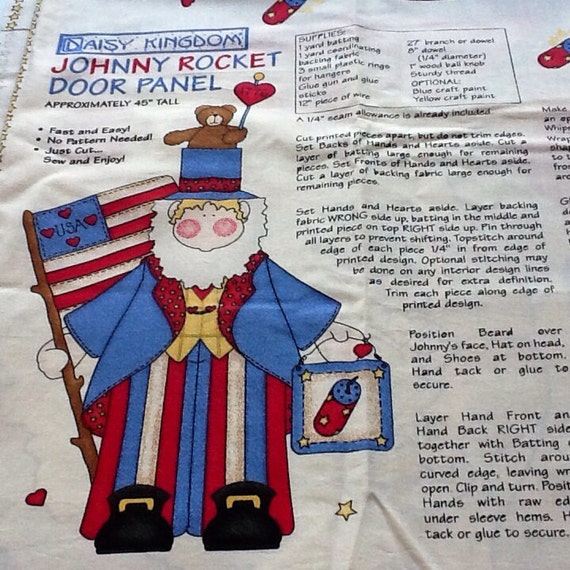 DAISY KINGDOM
JOHNNY ROCKET
DOOR PANEL
APPROXIMATELY 45" TALL
• Fast and Easy!
• No Pattern Needed!
• Just Cut...
Sew and Enjoy!
USA
SUPPLIES:
1 yard batting
1 yard coordinating
backing fabric
3 small plastic rings
for hangers
Glue gun and glue
sticks
12" piece of wire
27" branch or dowel
8" dowel
(1/4" diameter)
1" wood ball knob
Sturdy thread
OPTIONAL:
Blue craft paint
Yellow craft paint
A 1/4" seam allowance is already included
Cut printed pieces apart, but do not trim edges.
Set Backs of Hands and Hearts aside. Cut a
layer of batting large enough for remaining
pieces. Set Fronts of Hands and Hearts aside.
Cut a layer of backing fabric large enough for
remaining pieces.
Set Hands and Hearts aside. Layer backing
fabric WRONG side up, batting in the middle and
printed piece on top RIGHT side up. Pin through
all layers to prevent shifting. Topstitch around
edge of each piece 1/4" in from edge of
printed design. Optional stitching may
be done on any interior design lines
as desired for extra definition.
Trim each piece along edge of
printed design.
Position Beard over
Johnny's face, Hat on head,
and Shoes at bottom.
Hand tack or glue to
secure.
Layer Hand Front an
Hand Back RIGHT side
together with Batting
bottom. Stitch arou
curved edge, leaving wr
open. Clip and turn. Posit
Hands with raw ed
under sleeve hems. H
tack or glue to secure.
Make
an op
Whip
Wrap
sha
to t
of